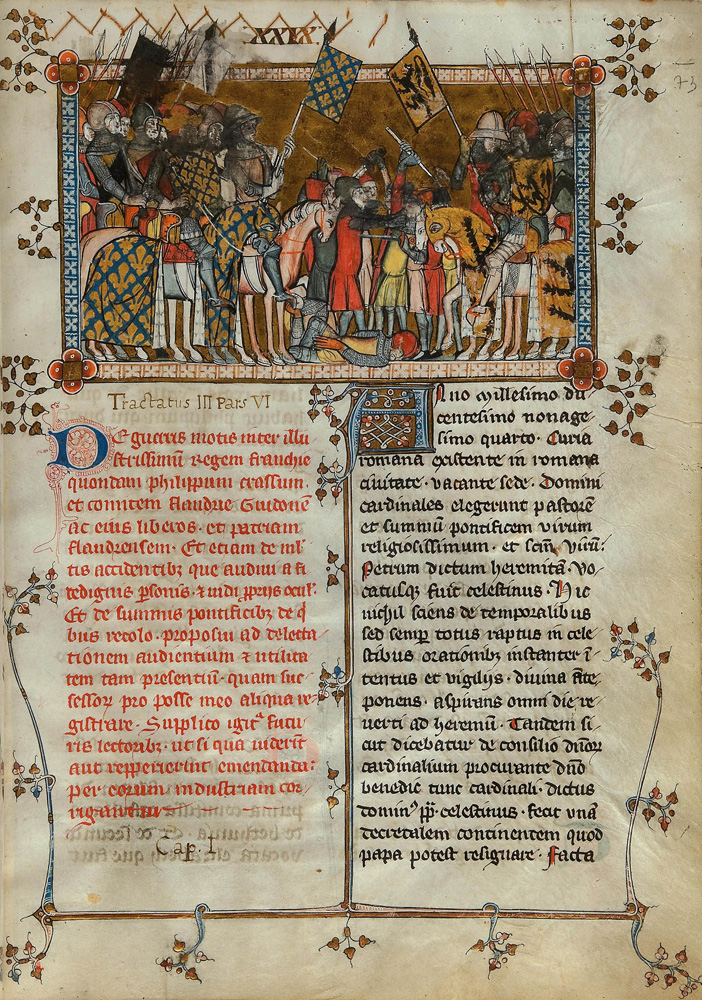 XXIX.
73
Tractatus III Pars VI
DE guerris motis inter illu
strissimū Regem franchie
quondam philippum crassum.
et comitem flandrie Guidonē
ac eius liberos · et patriam
flandrensem · Et etiam de ml̄
tis accidentibꝫ que audiui a fi
dedignis ꝑsonis · ⁊ uidi ꝓprijs ocul̄ ·
Et de summis pontificibꝫ de q̄
bus recolo · proposui ad delecta
tionem audientium ⁊ utilita
tem tam presentiū · quam suc
cessoꝝ pro posse meo aliqua re
gistrare · Supplico igitᷣ futu
ris lectoribꝫ · ut si qua uiderīt
aut repperierint emendanda:
per eorum industriam cor
rigantur
Cap. I
Anno millesimo du
centesimo nonage
simo quarto · Curia
romana existente in romana
ciuitate · vacante sede · Domini
cardinales elegerunt pastorē
et summū pontificem virum
religiosissimum · et scm̄ virū:
Petrum dictum heremitā · vo
catusqꝫ fuit celestinus · Hic
nichil sciens de temporalibus
sed semꝑ totus raptus in cele
stibus orationibꝫ instanter ī
tentus et vigilijs · diuina āte
ponens · aspirans omni die re
uerti ad heremū · Tandem si
cut dicebatur de consilio dn̄oꝝ
cardinalium procurante dn̄o
benedic̄ tunc cardinali · dictus
dominꝰ pp̄ celestinus · fecit vnā
decretalem continentem quod
papa potest resignare · facta